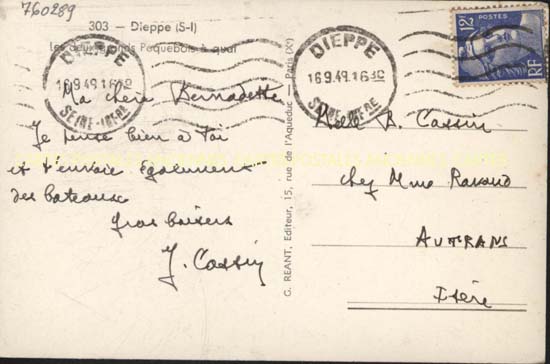 760289
303 — Dieppe (S-I)
les deux grands Paquebots à quai
DIEPPE
16.9.49.16 30
SEINE-INFRE
DIEPPE
16.9.49.16 30
SEINE-INFRE
12F
POSTES
RF
Ma chère Bernadette
Je pense bien à Toi
et t'envoie également
des bateaux
Gros baisers
J. Cassin
G. REANT, Editeur, 15, rue de l'Aqueduc — Paris (Xe)
Melle B. Cassin
chez Mme Ravaud
AUTRANS
Isère